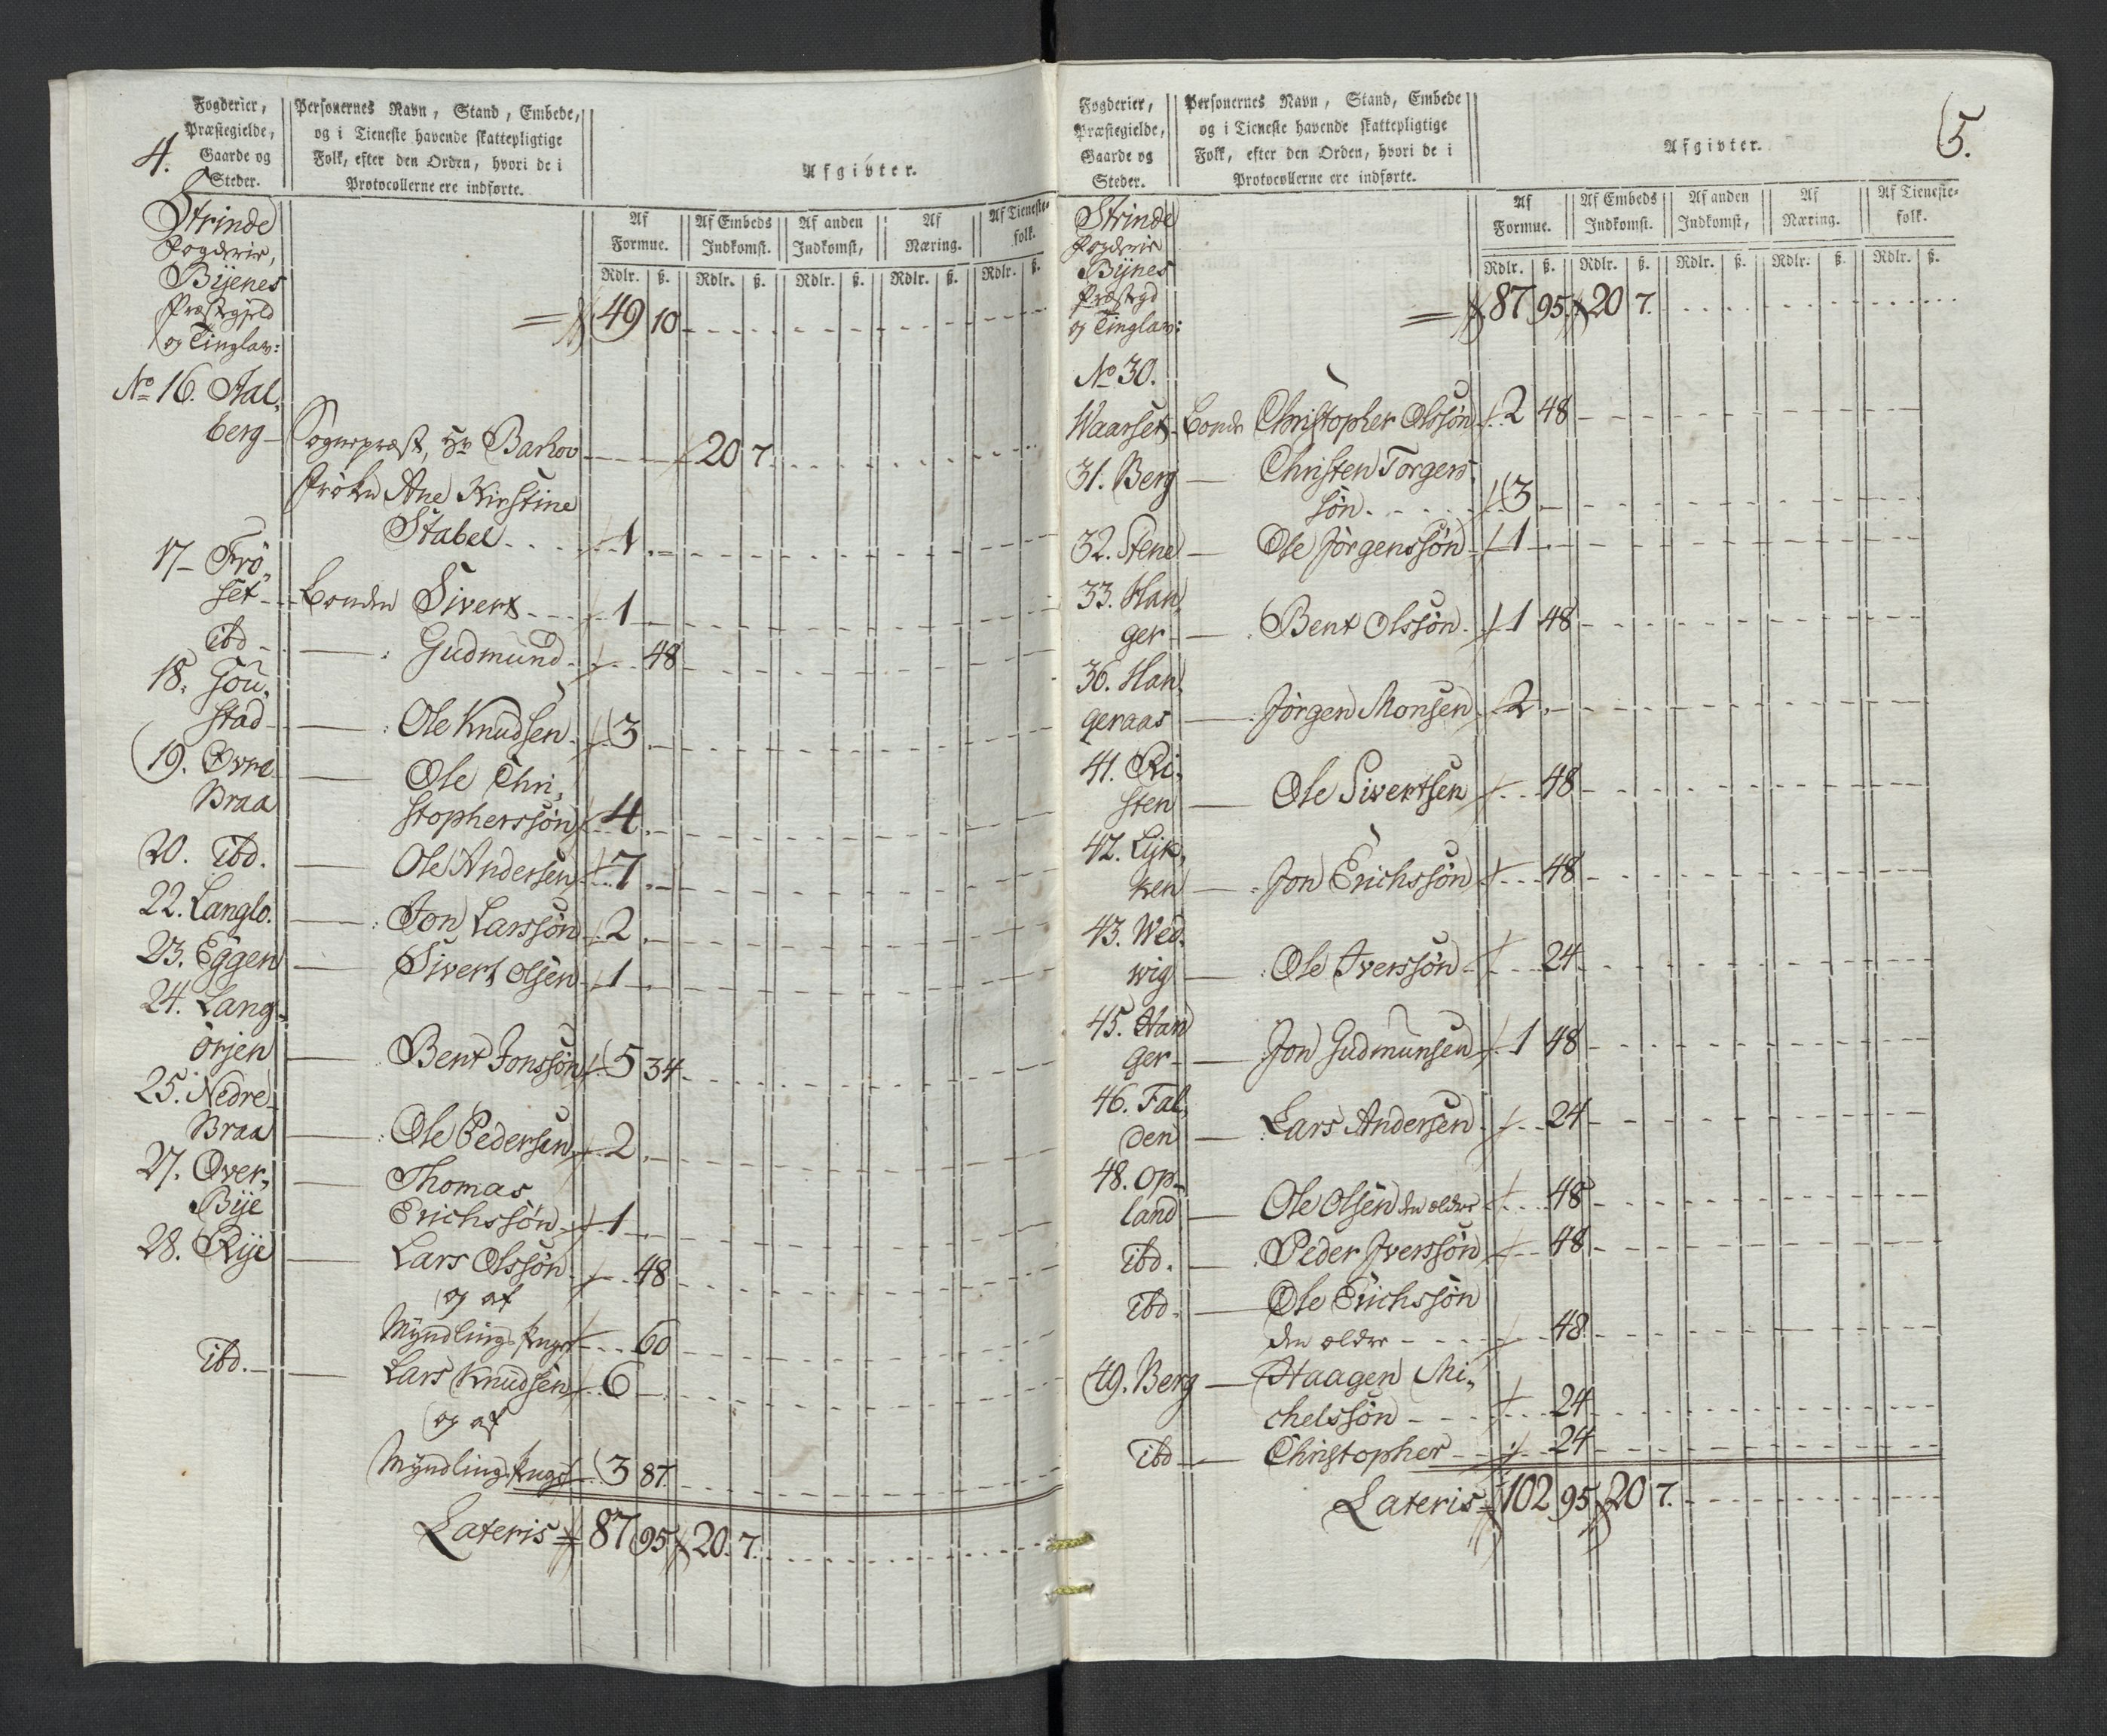 4.
Fogderier,
Præstegielde,
Gaarde og
Steder.
Personernes Navn, Stand, Embede,
og i Tieneste havende skattepligtige
Folk, efter den Orden, hvori de i
Protocollerne ere indførte.
Afgivter.
Af Formue. Af Embeds Indkomst. Af anden Indkomst, Af Næring. Af Tieneste-folk.
Rdlr. ß. Rdlr. ß. Rdlr. ß. Rdlr. ß. Rdlr. ß.
Strinde
Fogderie,
Bijenes
Præstegjeld
og Tinglav:
= 49 10
No 16. Aal,
berg - Sognepræst, Hr Barhow 20 7
Frøken Ane Kirstine
Stabel 1 -
17- Frö,
set - Bonden Sivert 1 -
ibd - Gudmund 48
18. Jou,
stad - Ole Knudsen 3 -
19. Øvre Ole Chri,
Braa stopherssøn 4 -
20. ibd. Ole Andersen 7 -
22. Langlo. Jon Larssøn 2 -
23. Eggen Sivert Olsen 1 -
24. Lang-
örjen Bent Jonssøn 5 34
25. Nedre
Braa Ole Pedersen 2 -
27. Over, Thomas
Bije Erichssøn 1 -
28. Rije Lars Olssøn 48
og af
Myndling 60
ibd. Lars Knudsen 6 -
og af
Myndling 3 87
Lateris = 87 95 20 7.
5.
Fogderier,
Præstegielde,
Gaarde og
Steder.
Personernes Navn, Stand, Embede
og i Tieneste havende skattepligtige
Folk, efter den Orden, hvori de i
Protocollerne ere indførte.
Afgivter.
Af Formue. Af Embeds Indkomst. Af anden Indkomst, Af Næring. Af Tieneste-folk.
Rdlr. ß. Rdlr. ß. Rdlr. ß. Rdlr. ß. Rdlr. ß.
Strinde
Fogderie
Bijnes
Præstegd
og Tinglav:
= 87 95 20 7.
No 30.
Waarset - Bonde Christopher Olssøn 2 48
31. Berg - Christen Torgers,
søn 3 -
32. Stene - Ole Jørgenssøn 1 -
33. Han,
ger - Bent Olssøn 1 48
36. Han,
geraas - Jørgen Monsen 2 -
41. Ri,
sten - Ole Sivertsen 48
42. Lijk,
ken - Jon Erichssøn 48
43. Wed,
wig - Ole Iverssøn 24
45. Han
ger - Jon Gudmunsen 1 48
46. Fal,
den - Lars Andersen 24
48. Op-
land - Ole Olsen den ældre 48
ibd. - Peder Iverssøn 48
ibd. - Ole Erichssøn
den ældre 48
49. Berg - Haagen Mi,
chelssøn 24
ibd - Christopher 24
Lateris 102 95 20 7.